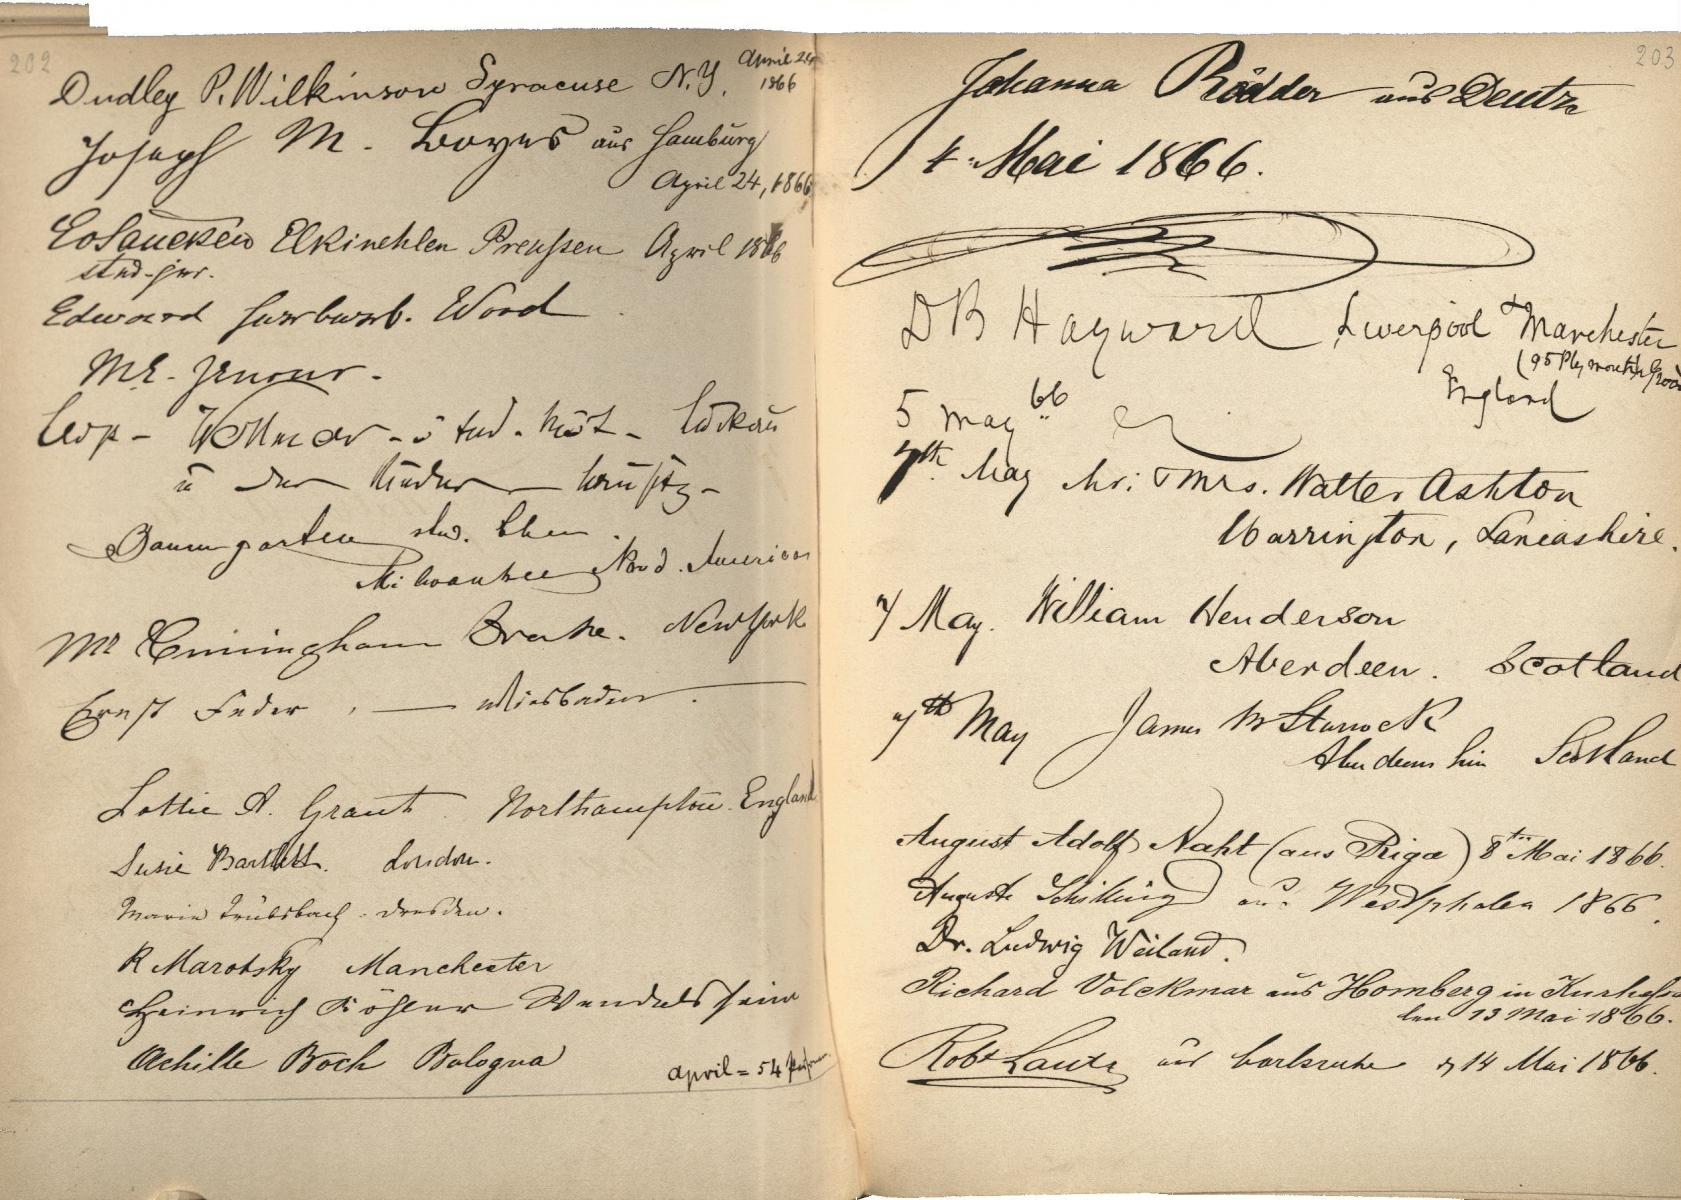 202
Dudley P. Wilkinson Syracuse N.Y. April 24
1866
Joseph M. aus Hamburg
April 24, 1866
Preußen April 1866
stud. jur.
Edward Wood
M.E.
Leop
Baumgarten stud. Chem.
Milwaukee Nord. American
Mr Cuningham New York
Ernst Feder, — Wiesbaden.
Lottie A. Grant Northampton. England
Susie Bartlett. London.
Marie Trübsbach. Dresden.
R Marotsky Manchester
Heinrich Köhler Wendelstein
Achille Boch Bologna
April = 54
203
Johanna Rödder aus Deutz
4. Mai 1866.
D B Hayward Liverpool + Manchester
(95 Plymouth Grove
England
5 May 66
7th May Mr. & Mrs. Walter Ashton
Warrington, Lancashire.
7 May. William Henderson
Aberdeen. Scotland
7th May James
Aberdeenshire Scotland
August Adolf Naht (aus Riga) 8ten Mai 1866.
Auguste Schilling aus Westphalen 1866.
Dr. Ludwig Weiland.
Richard Volckmar aus Homberg in Kurhessen
den 13 Mai 1866.
Robt Lautz aus Carlsruhe 14 Mai 1866.